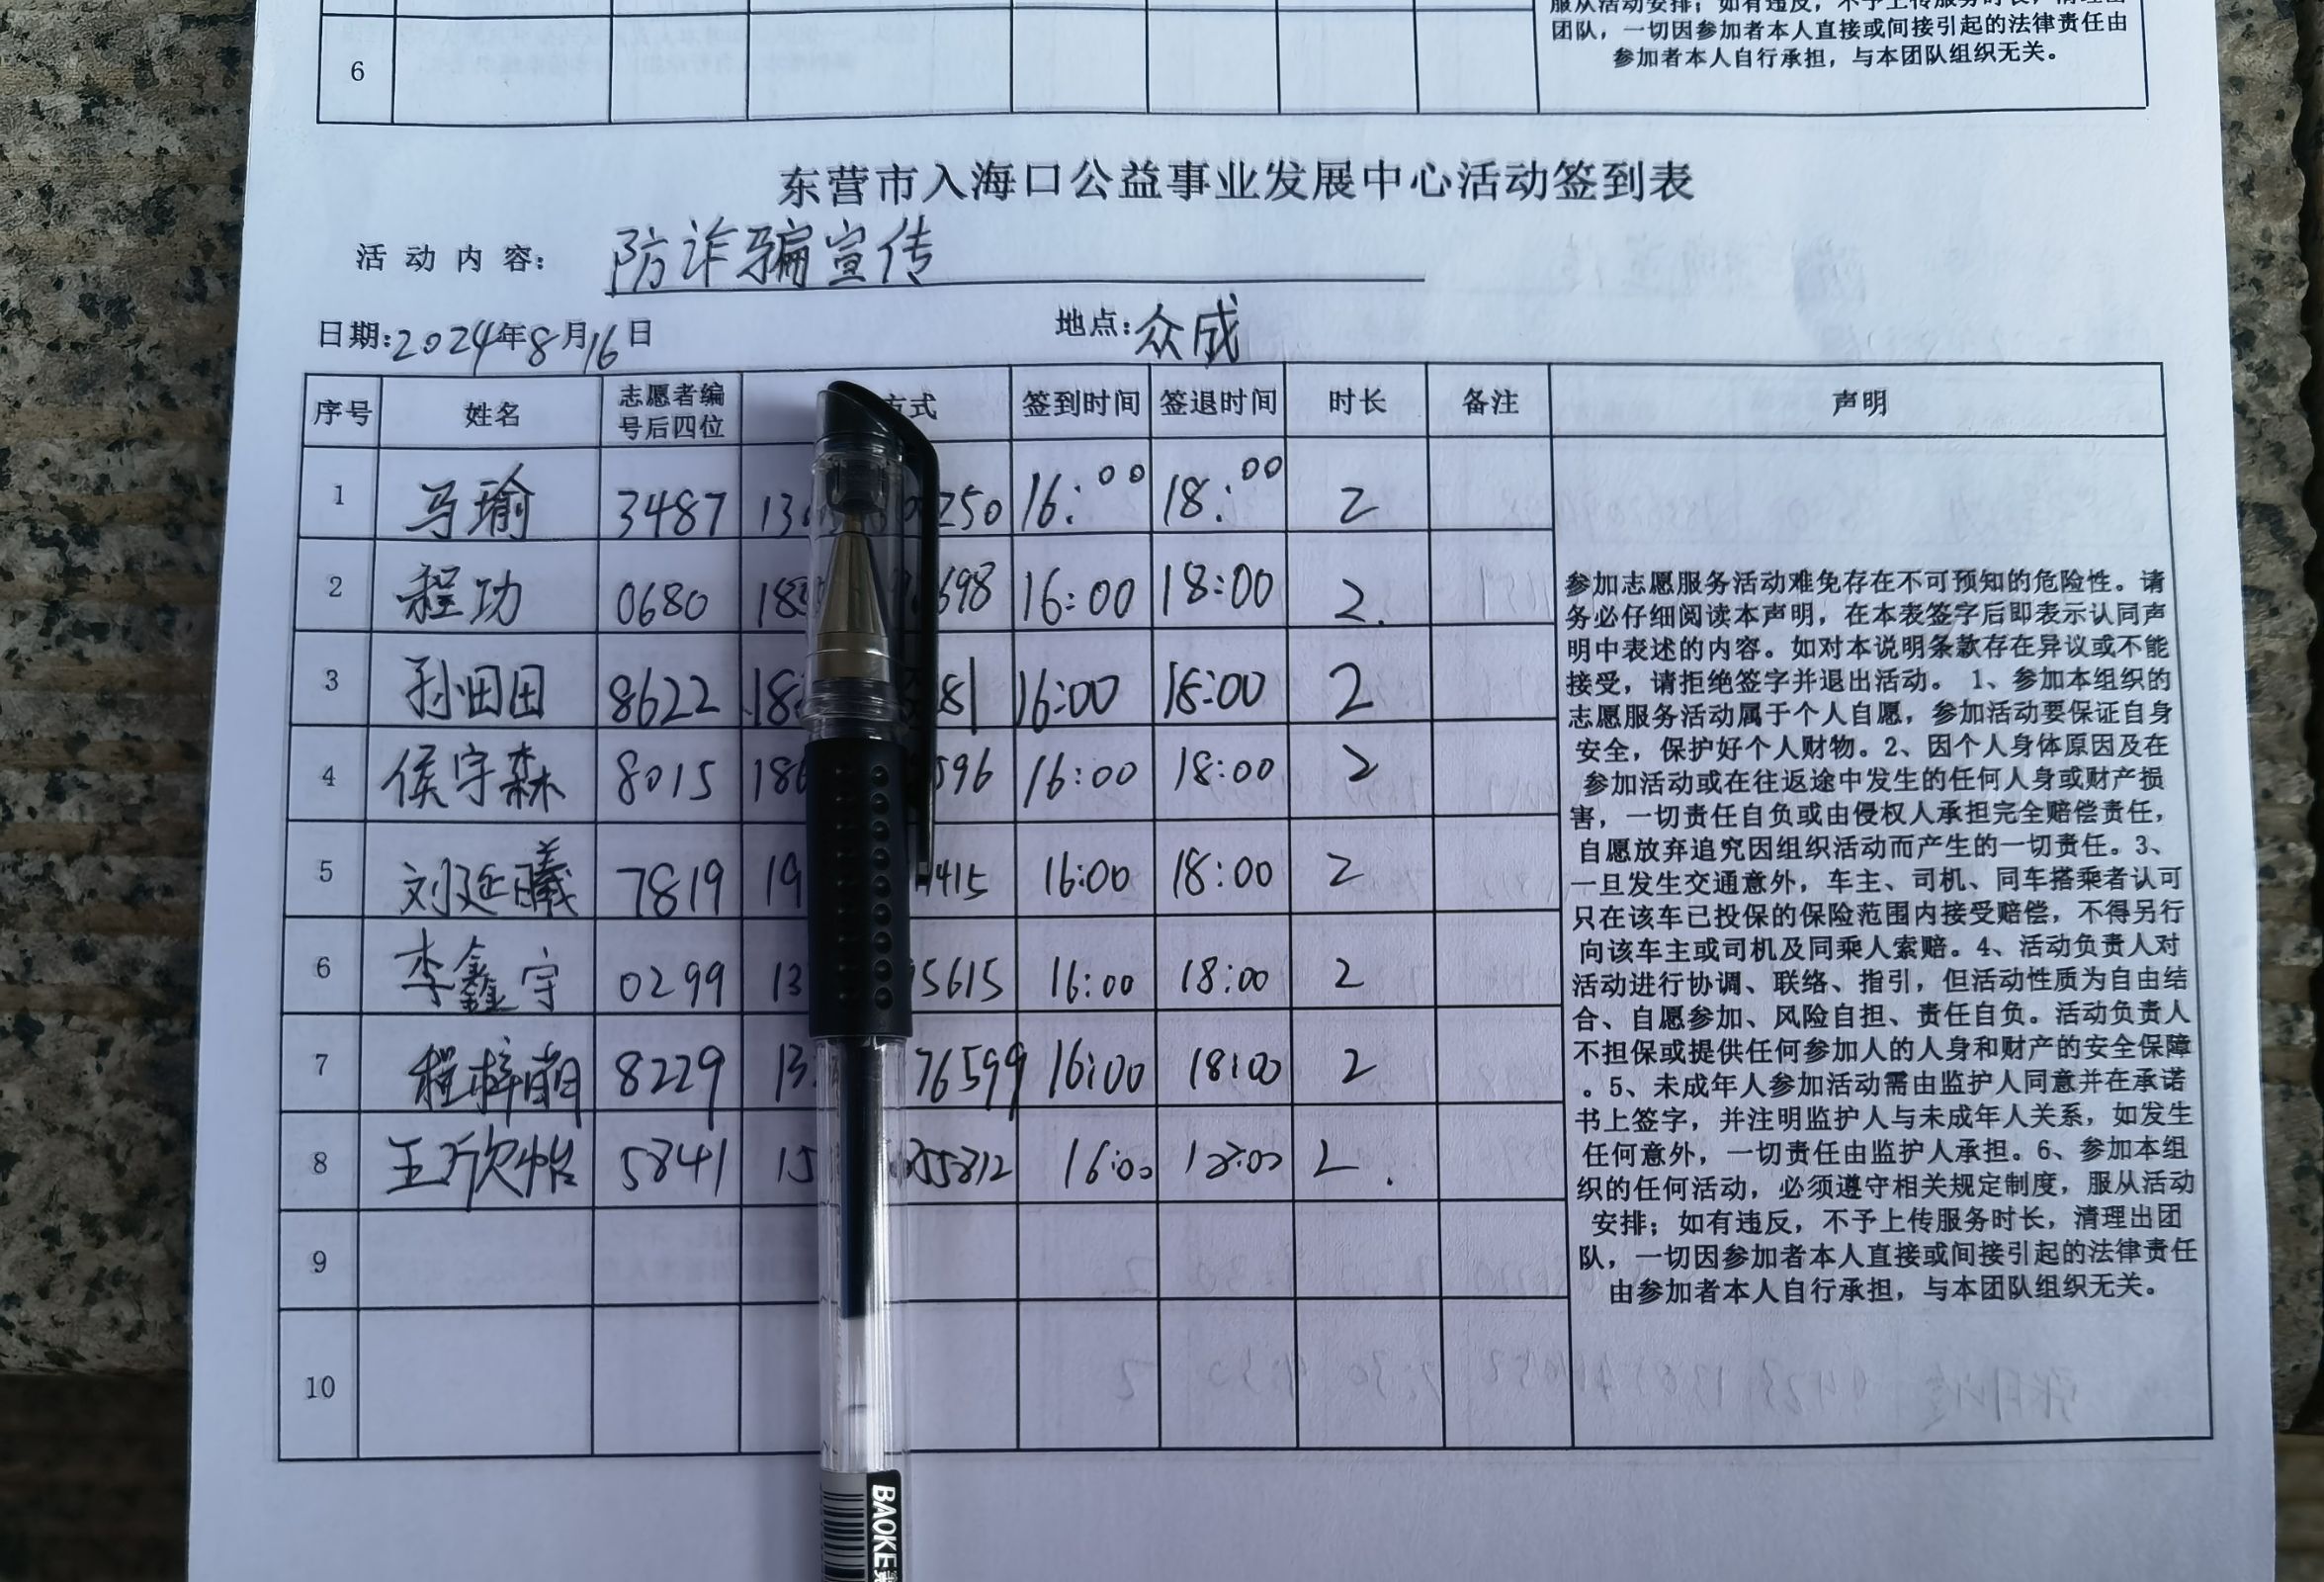 服从活动安排；如有违反，不予上传服务时长，清理出
团队，一切因参加者本人直接或间接引起的法律责任由
参加者本人自行承担，与本团队组织无关。
6
东营市入海口公益事业发展中心活动签到表
活动内容：防诈骗宣传
日期:2024年8月16日 地点:众成
序号 姓名 志愿者编号后四位 方式 签到时间 签退时间 时长 备注 声明
1 马瑜 3487 13 250 16:00 18:00 2
2 程功 0680 18 698 16:00 18:00 2.
3 孙田田 8622 18 81 16:00 18:00 2
4 侯宇森 8015 186 596 16:00 18:00 2
5 刘延曦 7819 19 1415 16:00 18:00 2
6 李鑫宇 0299 13 15615 16:00 18:00 2
7 程梓萌 8229 13 76599 16:00 18:00 2
8 王欣怡 5841 15 55812 16:00 18:00 2.
9
10
参加志愿服务活动难免存在不可预知的危险性。请
务必仔细阅读本声明，在本表签字后即表示认同声
明中表述的内容。如对本说明条款存在异议或不能
接受，请拒绝签字并退出活动。 1、参加本组织的
志愿服务活动属于个人自愿，参加活动要保证自身
安全，保护好个人财物。2、因个人身体原因及在
参加活动或在往返途中发生的任何人身或财产损
害，一切责任自负或由侵权人承担完全赔偿责任，
自愿放弃追究因组织活动而产生的一切责任。3、
一旦发生交通意外，车主、司机、同车搭乘者认可
只在该车已投保的保险范围内接受赔偿，不得另行
向该车主或司机及同乘人索赔。4、活动负责人对
活动进行协调、联络、指引，但活动性质为自由结
合、自愿参加、风险自担、责任自负。活动负责人
不担保或提供任何参加人的人身和财产的安全保障
。5、未成年人参加活动需由监护人同意并在承诺
书上签字，并注明监护人与未成年人关系，如发生
任何意外，一切责任由监护人承担。6、参加本组
织的任何活动，必须遵守相关规定制度，服从活动
安排；如有违反，不予上传服务时长，清理出团
队，一切因参加者本人直接或间接引起的法律责任
由参加者本人自行承担，与本团队组织无关。
BAOKE